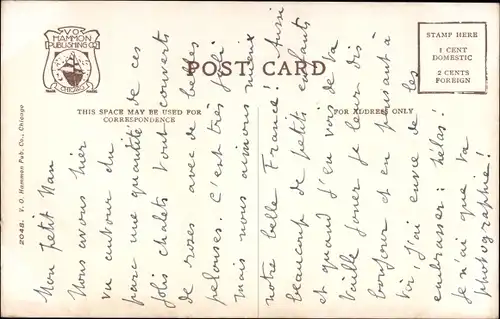 V.O.
HAMMON
PUBLISHING CO.
CHICAGO
POST CARD
THIS SPACE MAY BE USED FOR
CORRESPONDENCE
FOR ADDRESS ONLY
STAMP HERE
1 CENT
DOMESTIC
2 CENTS
FOREIGN
2048. V. O. Hammon Pub. Co., Chicago
Mon petit Nan
Nous avons hier
vu autour du
parc une quantité de ces
jolis chalets tout couverts
de roses avec de belles
pelouses. C'est très joli
mais nous aimons mieux
notre belle France! aussi
beaucoup de petits enfants
et quand j'en vois de ta
taille jouer je leur dis
bonjour et en pensant à
toi, j'ai envie de les
embrasser: hélas!
je n'ai que ta
photographie!